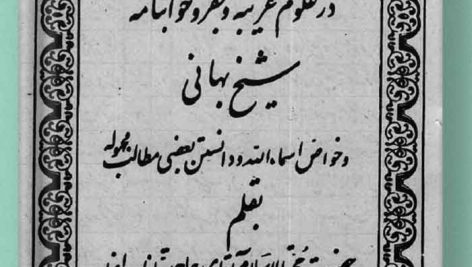 در علوم غریبه و جفر و خوابنامه
شیخ بهائی
وخواص اسماءالله و دانستن بعضی مطالب مجهوله
بقلم